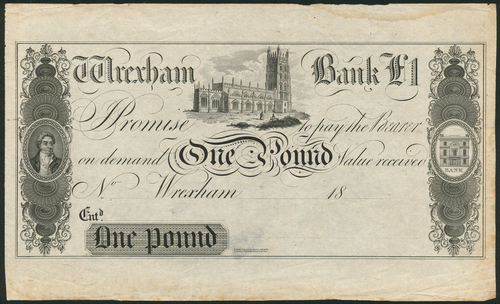 Wrexham Bank £1
I Promise to pay the Bearer
on demand One Pound Value received
No Wrexham 18
BANK
Entd.
One Pound